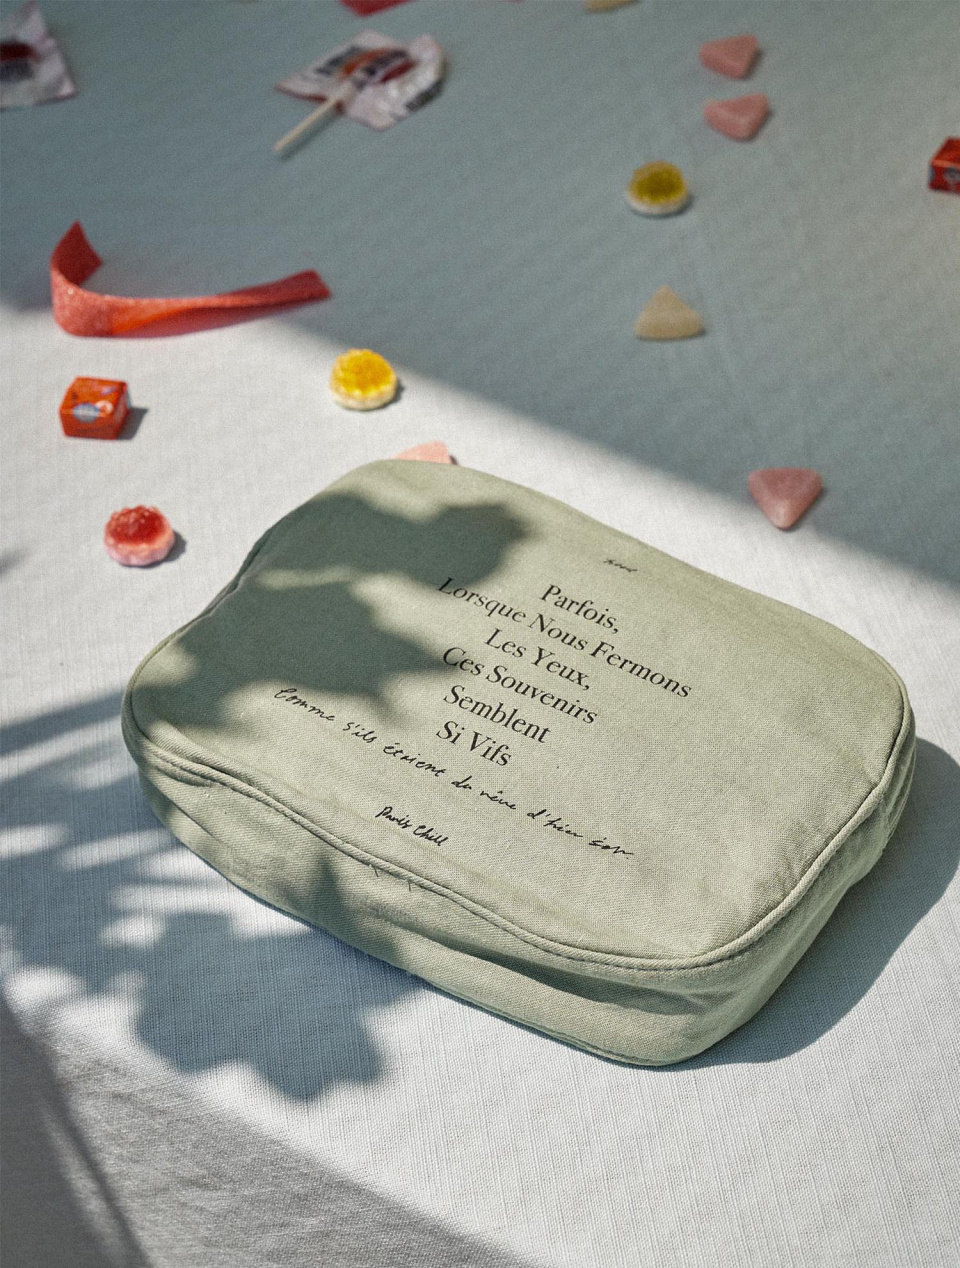 Parfois,
Lorsque Nous Fermons
Les Yeux,
Ces Souvenirs
Semblent
Si Vifs
Comme s'ils étaient du rêve d'hier soir.
Paris Chill